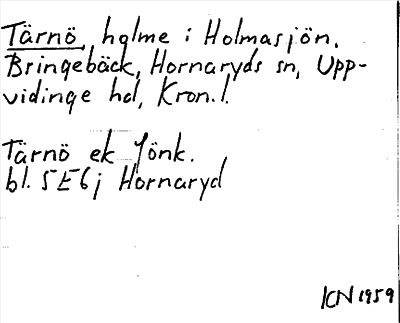 Tärnö, holme i Holmasjön.
Bringebäck, Hornaryds sn, Upp-
vidinge hd, Kron. l.
Tärnö ek Jönk.
bl. 5E6j Hornaryd
KN 1959